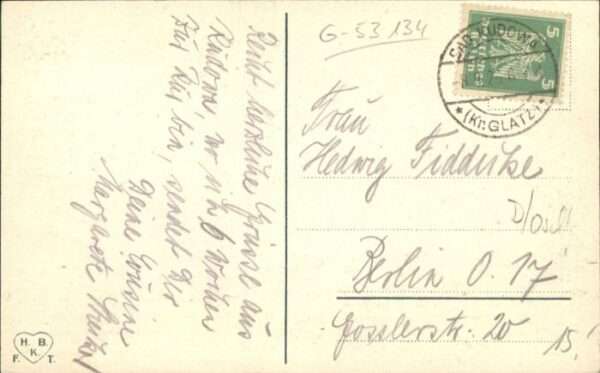 Recht herzliche Grüsse aus
Kudowa, wo ich 6 Wochen
zur Kur bin, sendet Dir
Deine Cousine
Margarete
G-53 134
5 5
BAD KUDOWA
* (Kr. GLATZ) *
Frau
Hedwig Fiddicke
Berlin O. 17
Gosslerstr. 20
15.
H. B.
K
F. T.